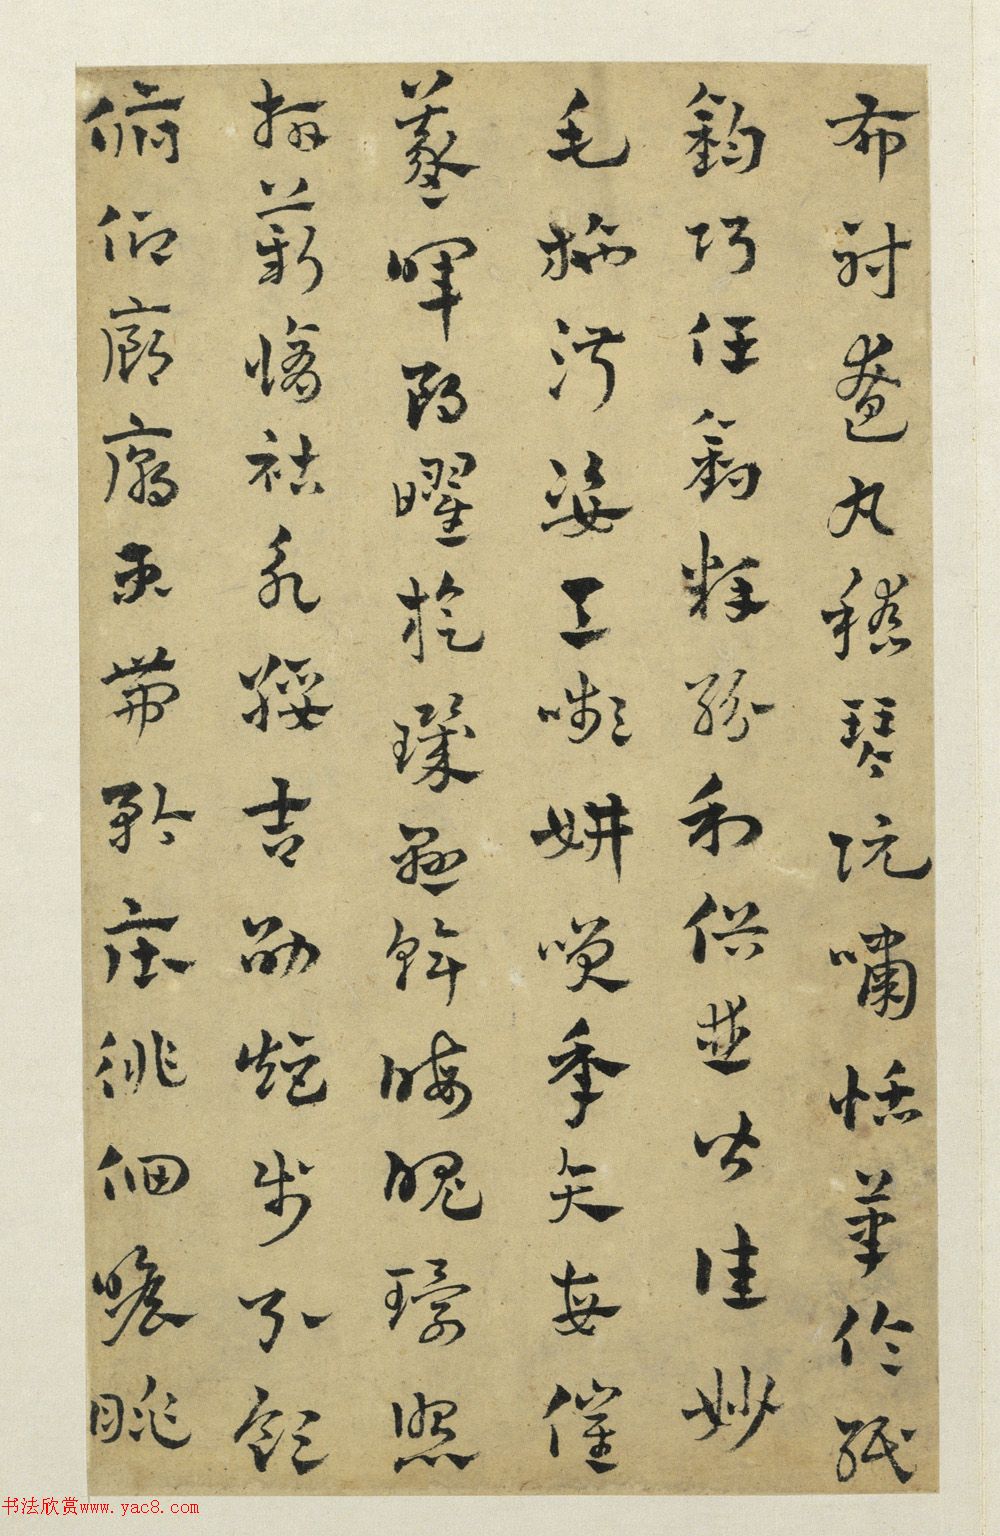 布射遼丸嵇琴阮嘯恬筆倫紙
鈞巧任釣釋紛利俗並皆佳妙
毛施淑姿工顰妍笑年矢每催
羲暉朗曜旋璣懸斡晦魄環照
指薪脩祜永綏吉劭矩步引領
俯仰廊廟束帶矜莊徘徊瞻眺
书法欣赏www.yac8.com